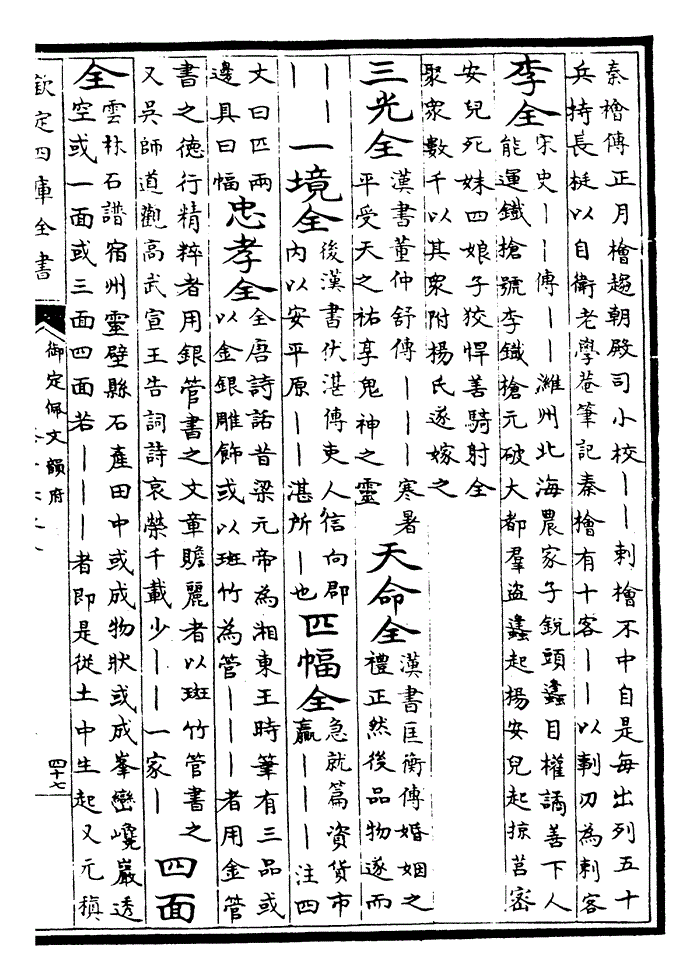 秦檜傳正月檜趨朝殿司小校丨丨刺檜不中自是每出列五十
兵持長梃以自衛老學菴筆記秦檜有十客丨丨以剚刃為刺客
李全
宋史丨丨傳丨丨濰州北海農家子銳頭蠭目權譎善下人
能運鐵槍號李鐵槍元破大都羣盜蠭起楊安兒起掠莒密
安兒死妹四娘子狡悍善騎射全
聚衆數千以其衆附楊氏遂嫁之
三光全
漢書董仲舒傳丨丨丨寒暑
平受天之祐享鬼神之靈
天命全
漢書匡衡傳婚姻之
禮正然後品物遂而
丨丨
丨丨
一境全
後漢書伏湛傳吏人信向郡
内以安平原丨丨湛所丨也
匹幅全
急就篇資貨市
贏丨丨丨注四
丈曰匹兩
邊具曰幅
忠孝全
全唐詩話昔梁元帝為湘東王時筆有三品或
以金銀雕飾或以斑竹為管丨丨丨者用金管
書之德行精粹者用銀管書之文章贍麗者以斑竹管書之
又吳師道觀高武宣王告詞詩哀榮千載少丨丨一家丨
四面
全
雲林石譜宿州靈壁縣石產田中或成物狀或成峯巒巉巖透
空或一面或三面四面若丨丨丨者即是從土中生起又元稹
欽定四庫全書
御定佩文韻府
四十七